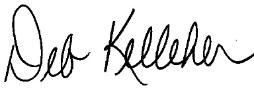 Deb Kelleher